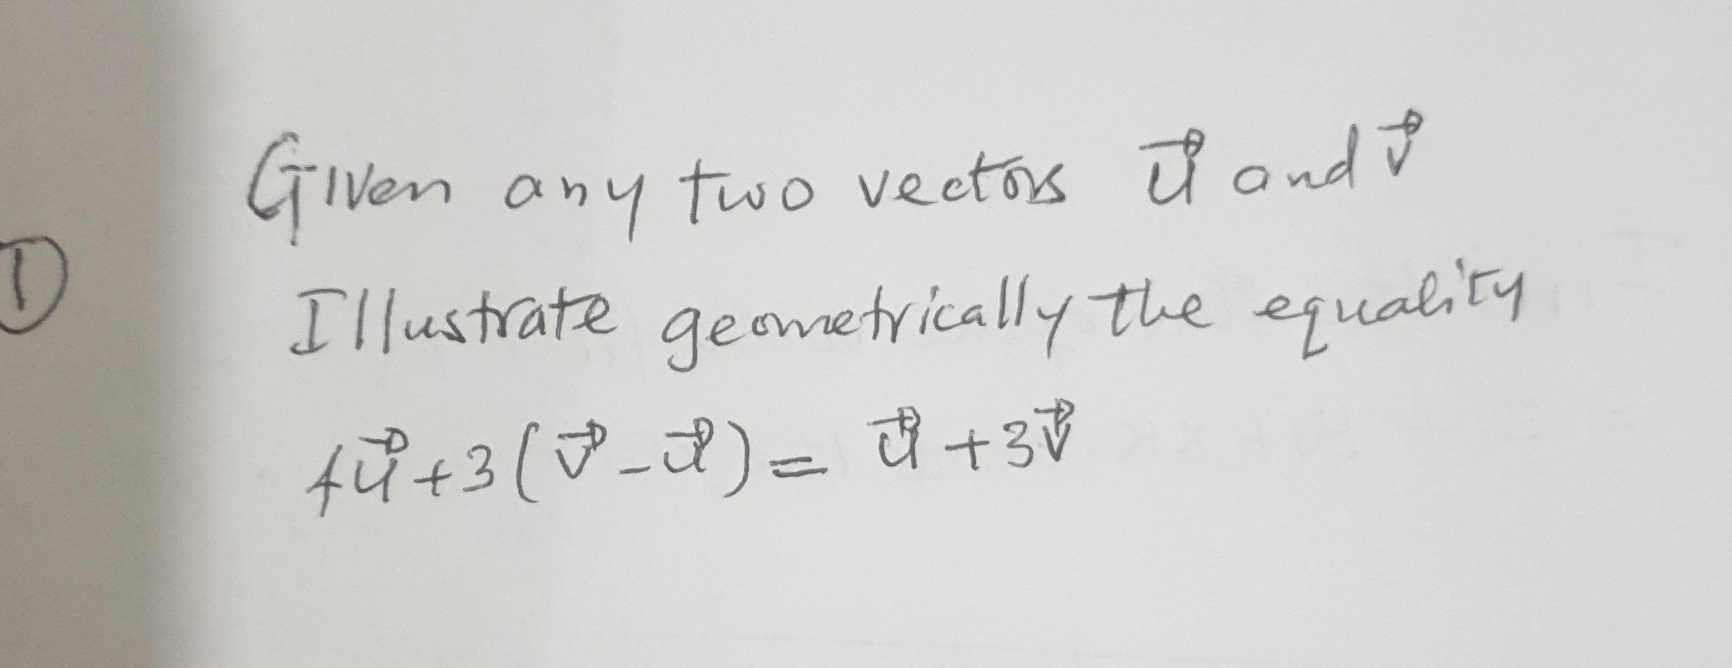 Given any two vectors u⃗ and v⃗
① Illustrate geometrically the equality
4u⃗+3(v⃗-u⃗)= u⃗+3v⃗